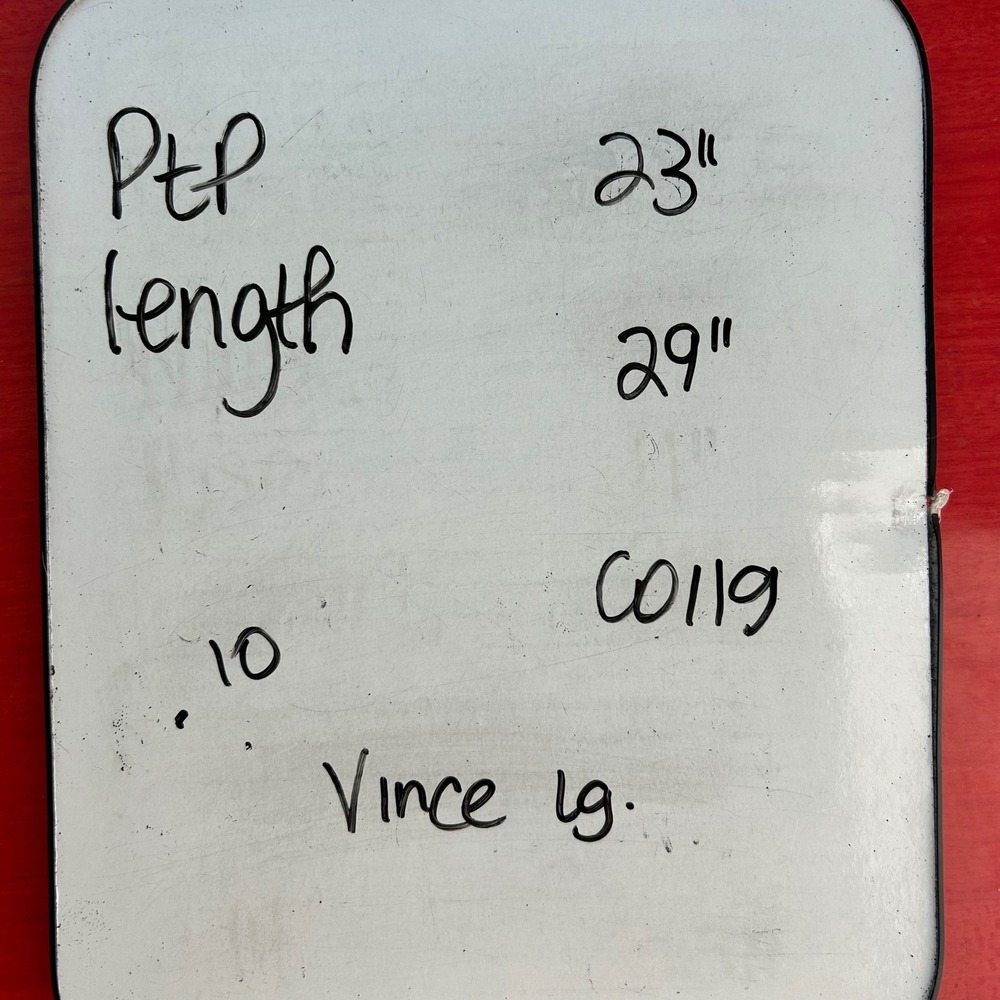 PtP 23"
length 29"
C0119
10
Vince lg.